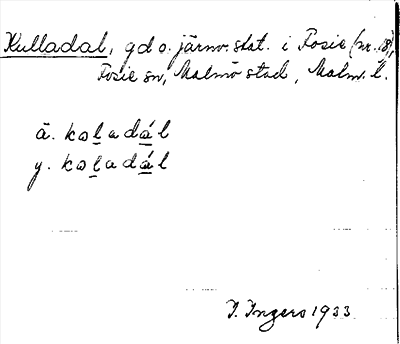 Kulladal, gd o. järnv. stat. i Fosie (nr. 18),
Fosie sn, Malmö stad, Malm. l.
ä. koladál
y. koladál
I. Ingers 1933